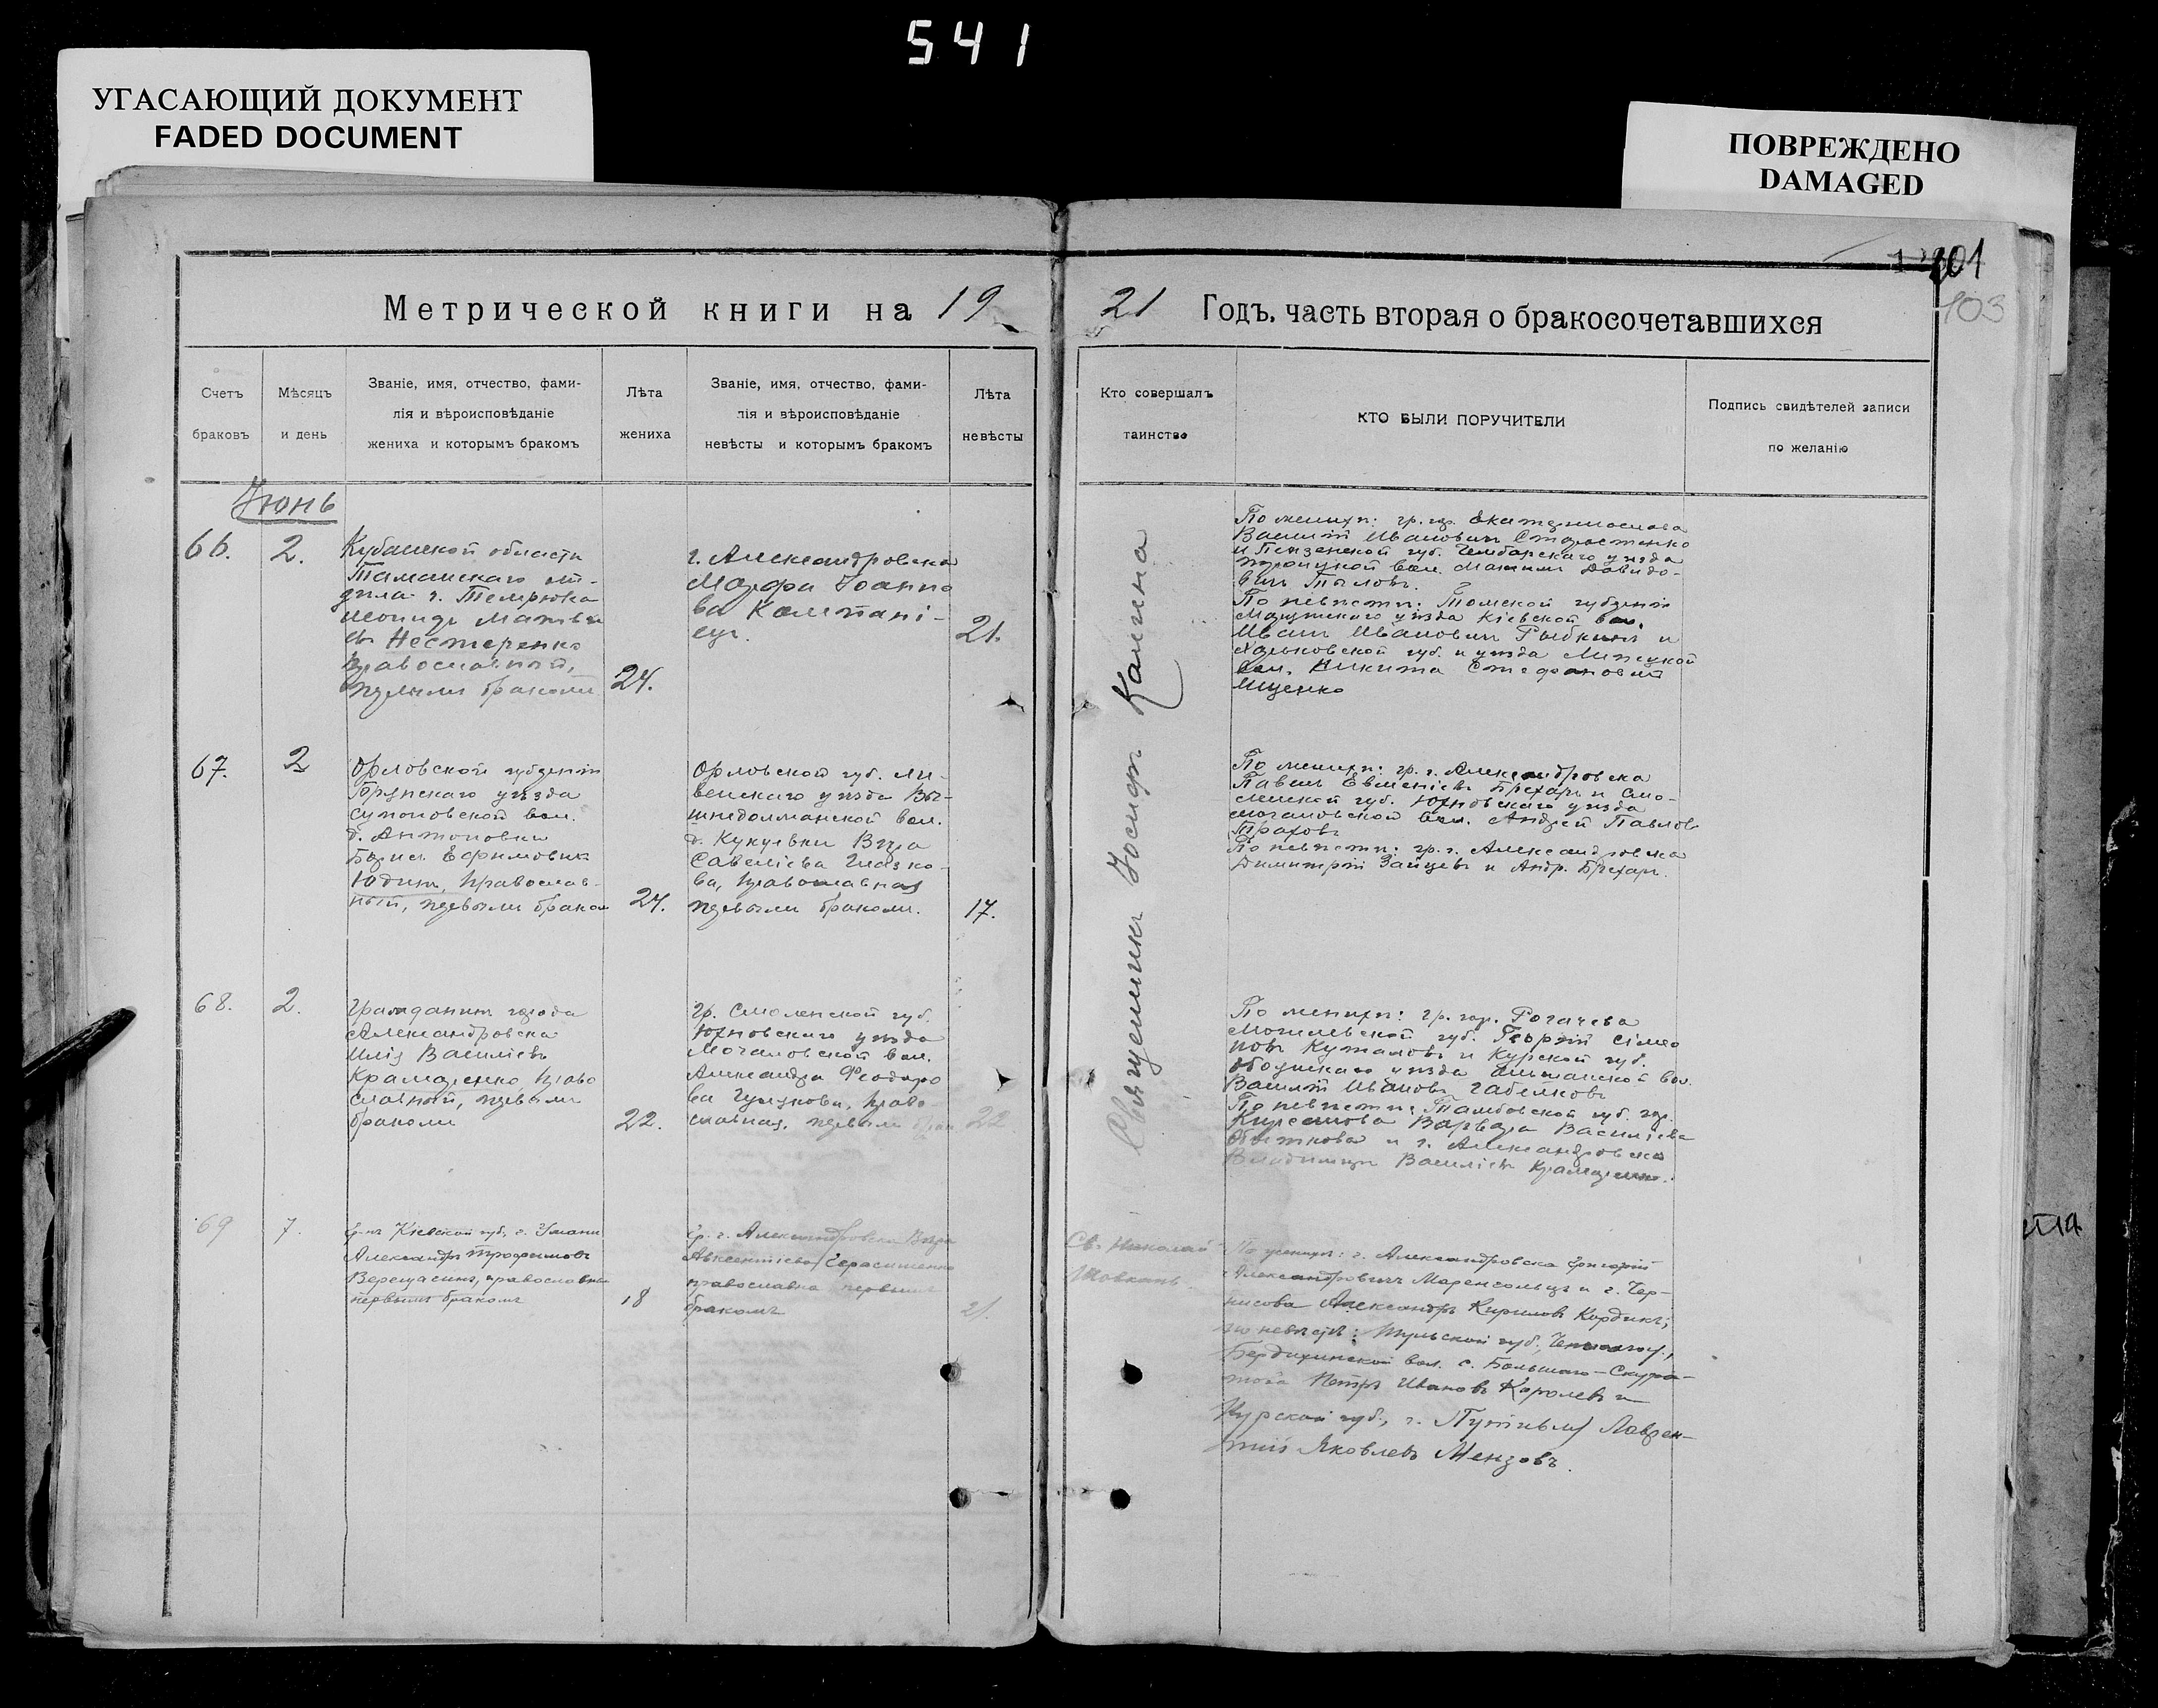 541
УГАСАЮЩИЙ ДОКУМЕНТ
FADED DOCUMENT
ПОВРЕЖДЕНО
DAMAGED
201
103
Метрической книги на 19
21 Годъ, часть вторая о бракосочетавшихся
Счетъ
браковъ
Мѣсяцъ
и день
Званіе, имя, отчество, фами-
лія и вѣроисповѣданіе
жениха и которымъ бракомъ
Лѣта
жениха
Званіе, имя, отчество, фами-
лія и вѣроисповѣданіе
невѣсты и которымъ бракомъ
Лѣта
невѣсты
Кто совершалъ
таинство
КТО БЫЛИ ПОРУЧИТЕЛИ
Подпись свидѣтелей записи
по желанію
Іюнь
66.
2.
Кубанской области
Таманскаго от-
дѣла г. Темрюка
Леонидъ Матвѣе
въ Нестеренко
православный,
первымъ бракомъ
24.
г. Александровска
Марфа Іоанно
ва
21.
Священникъ Іосифъ Калина
По женихѣ: гр. гор. Екатеринослава
Василій Ивановичъ
и Пензенской губ. Чембарскаго уѣзда
вол. Максимъ Давидо-
вичъ
По невѣстѣ: Томской губерніи
уѣзда Кіевской вол.
Иванъ Ивановичъ Рыбкинъ и
Харьковской губ. и уѣзда Липецкой
вол. Никита Стефановичъ
Ищенко
67.
2
Орловской губерніи
Брянскаго уѣзда
Супоновской вол.
д. Антоновки
Борисъ Ефимовичъ
Юдинъ, православ-
ный, первымъ бракомъ
24.
Орловской губ. Ли-
венскаго уѣзда Вы-
шнедолжанской вол.
д. Кукуевки Вѣра
Савеліева Глазко-
ва, православная
первымъ бракомъ.
17.
По женихѣ: гр. г. Александровска
Павелъ Евменіевъ Брехаръ и Смо-
ленской губ. Юхновскаго уѣзда
вол. Андрей Павловъ
По невѣстѣ: гр. г. Александровска
Димитрій Зайцевъ и Андр. Брехаръ.
68.
2.
Гражданинъ города
Александровска
Илія Василіевъ
Крамаренко, право
славный, первымъ
бракомъ
22.
Гр. Смоленской губ.
Юхновскаго уѣзда
вол.
Александра Феодоро
ва право-
славная, первымъ
22
По женихѣ: гр. гор. Рогачева
Могилевской губ. Георгій Симео
новъ и Курской губ.
уѣзда вол.
Василій Ивановъ
По невѣстѣ: Тамбовской губ. гор.
Кирсанова Варвара Василіева
и г. Александровска
Владимиръ Василіевъ Крамаренко.
69
7.
Гр-нъ Кіевской губ., г. Умани
Александръ Трофимовъ
Верещагинъ, православный
первымъ бракомъ
18
Гр. г. Александровска Вѣра
Авксентіева Герасименко
православна первымъ
бракомъ
21.
Св. Николай
По женихѣ: г. Александровска Григорій
Александровичъ и г. Чер-
Александръ Кириловъ Кордикъ;
по невѣстѣ: Тульской губ.,
вол. с. Большого-Скура-
това Петръ Ивановъ Королевъ и
Курской губ., г. Путивля Лаврен-
тій Яковлевъ Мензовъ.